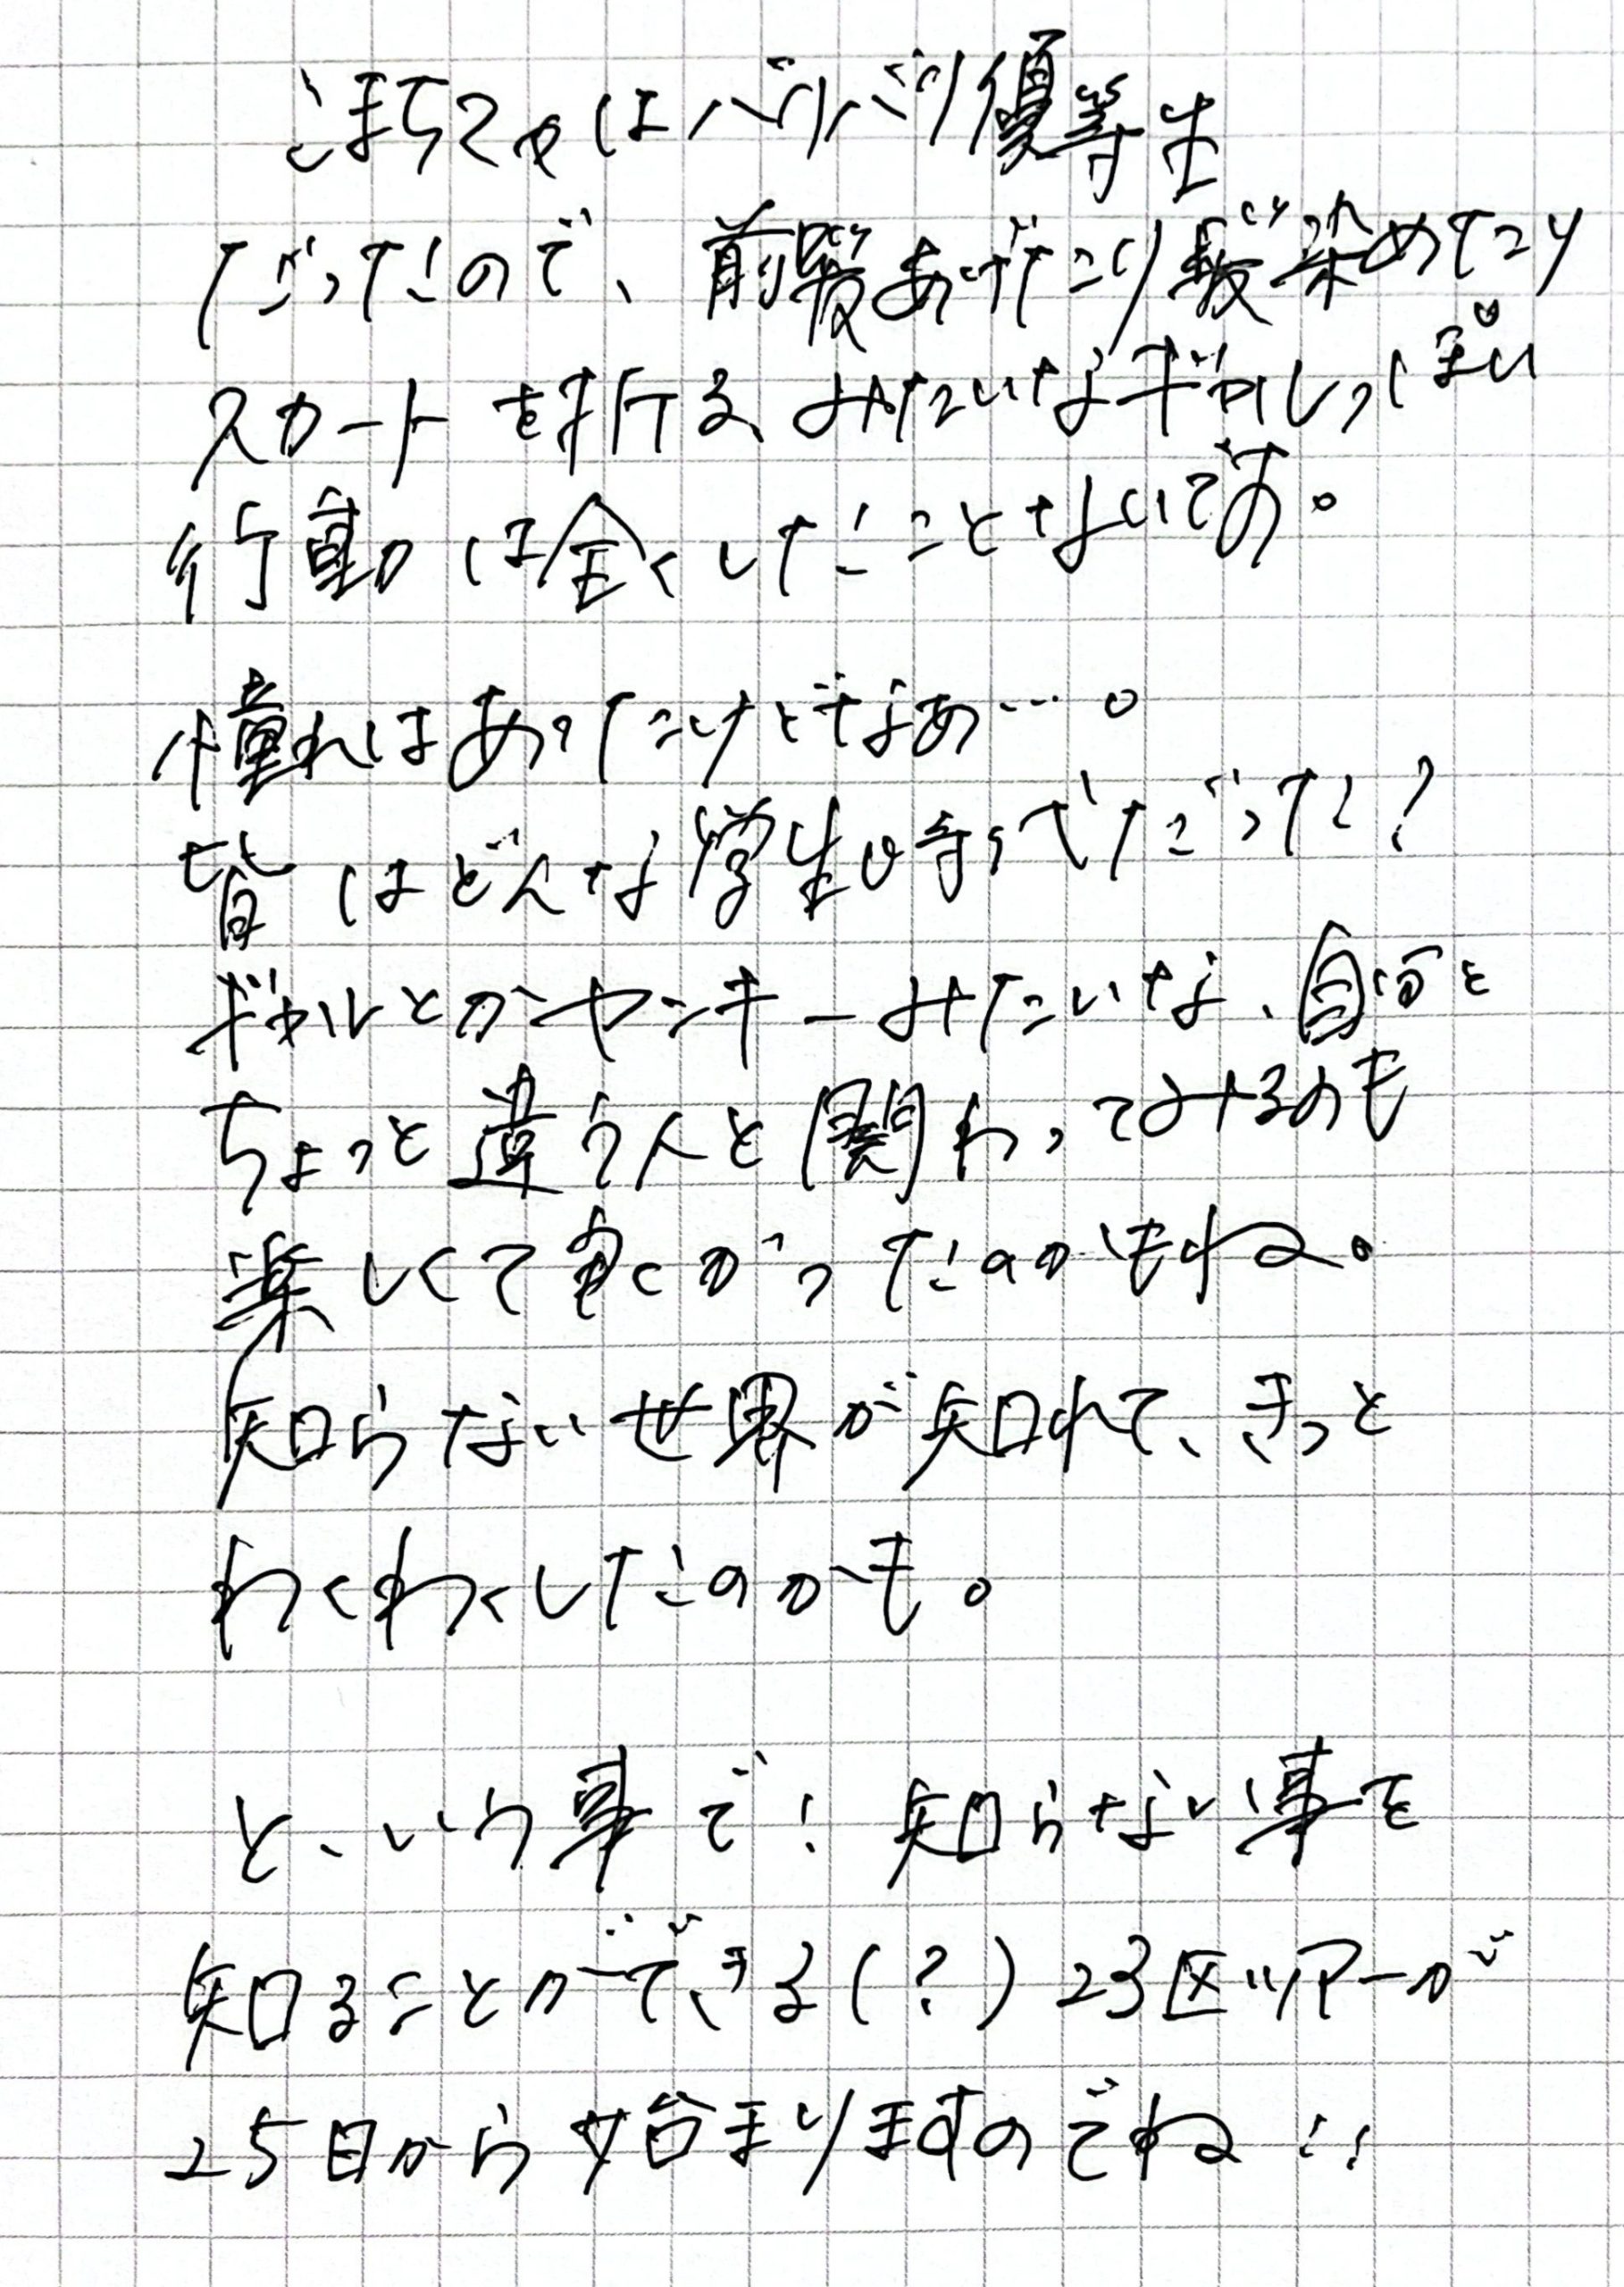 こまちてゃはバリバリ優等生
だったので、前髪あげたり髪染めたり
スカートを折るみたいなギャルっぽい
行動は全くしたことないです。
憧れはあったけどなぁ…。
皆はどんな学生時代だった？
ギャルとかヤンキーみたいな、自分と
ちょっと違う人と関わってみるのも
楽しくて良かったのかもね。
知らない世界が知れて、きっと
わくわくしたのかも。
と、いう事で！知らない事を
知ることができる(？)23区ツアーが
25日から始まりますのでね！！